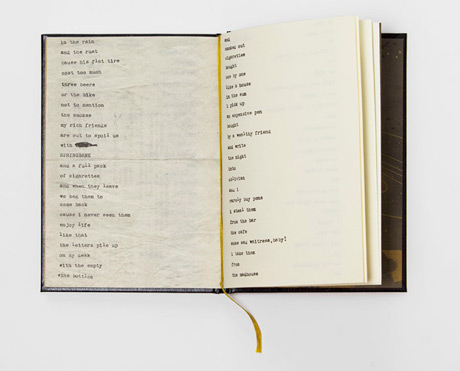 in the rain
and the rust
cause his flat tire
cost too much
three beers
or the bike
not to mention
the smokes
my rich friends
are out to spoil us
with
SPRINGBANK
and a full pack
of cigarettes
and when they leave
we beg them to
come back
cause i never seen them
enjoy life
like that
the letters pile up
on my desk
with the empty
wine bottles
and
smoked out
cigarettes
bought
one by one
like a house
in the sun
i pick up
an expensive pen
bought
by a wealthy friend
and write
the night
into
oblivion
see i
rarely buy pens
i steal them
from the bar
the cafe
some sexy waitress, baby!
i take them
from
the madhouse